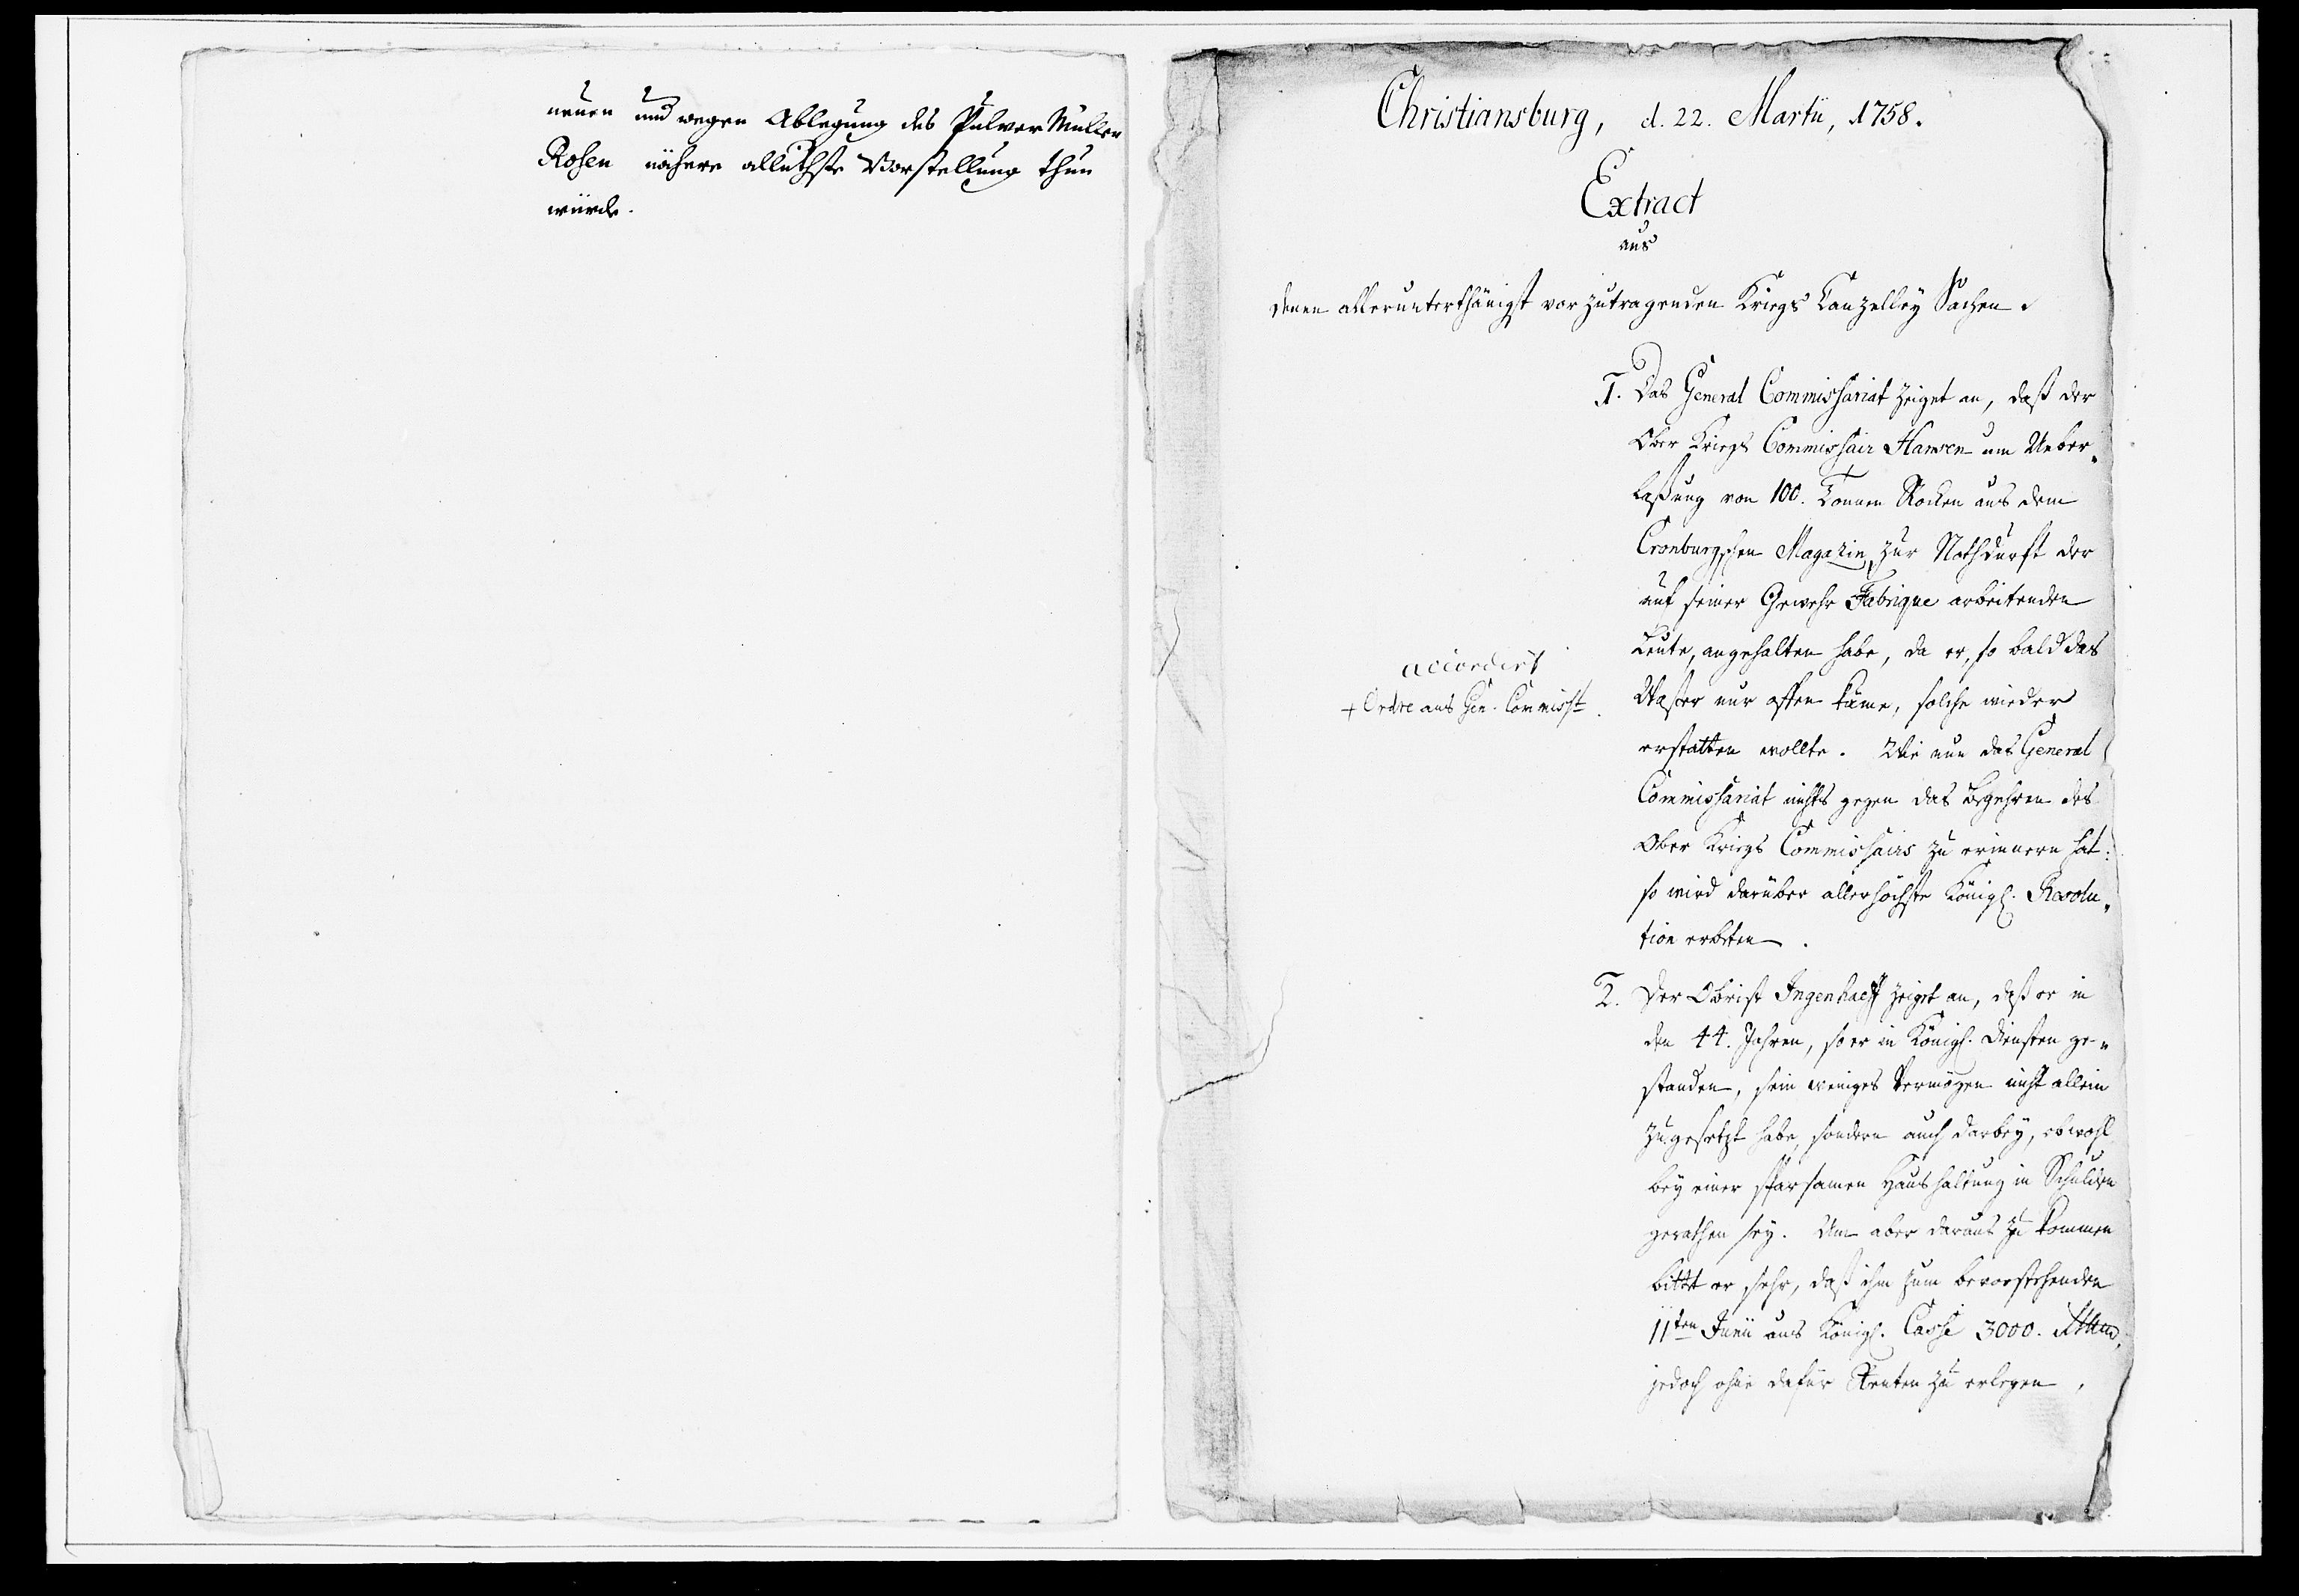 neuen und wegen Ablegung des Pulver Müller
Rosen nähere alluthste Vorstellung thun
würde.
Christiansburg, d. 22. Martii, 1758.
Extract
aus
denen allerunterthänigst vorzutragenden Kriegs Canzelley Sachen.
1. Das General Commissariat zeiget an, daß der
Ober Kriegs Commissair Hansen um Ueber-
laßung von 100. Tonnen Rocken aus dem
Cronburgschen Magazin, zur Nothdurft der
auf seiner Gewehr Fabrique arbeitenden
Leute, angehalten habe, da er, so bald das
Waßer nur offen käme, solche wieder
erstatten wollte. Wie nun das General
Commissariat nichts gegen das Begehren des
Ober Kriegs Commissairs zu erinnern hat:
so wird darüber allerhöchste Königl. Resolu-
tion erbeten.
accordirt
+ Ordre ans Gen. Commisst.
2. Der Obrist Ingenhaeff zeiget an, daß er in
den 44. Jahren, so er in Königl. Diensten ge-
standen, sein weniges Vermögen nicht allein
zugesetzt habe, sondern auch darbey, obwohl
bey einer sparsamen Haushaltung in Schulden
gerathen sey. Um aber daraus zu kommen
bittet er sehr, daß ihm zum bevorstehenden
11ten Junii aus Königl. Casse 3000. Rthlr,
jedoch ohne dafür Renten zu erlegen,